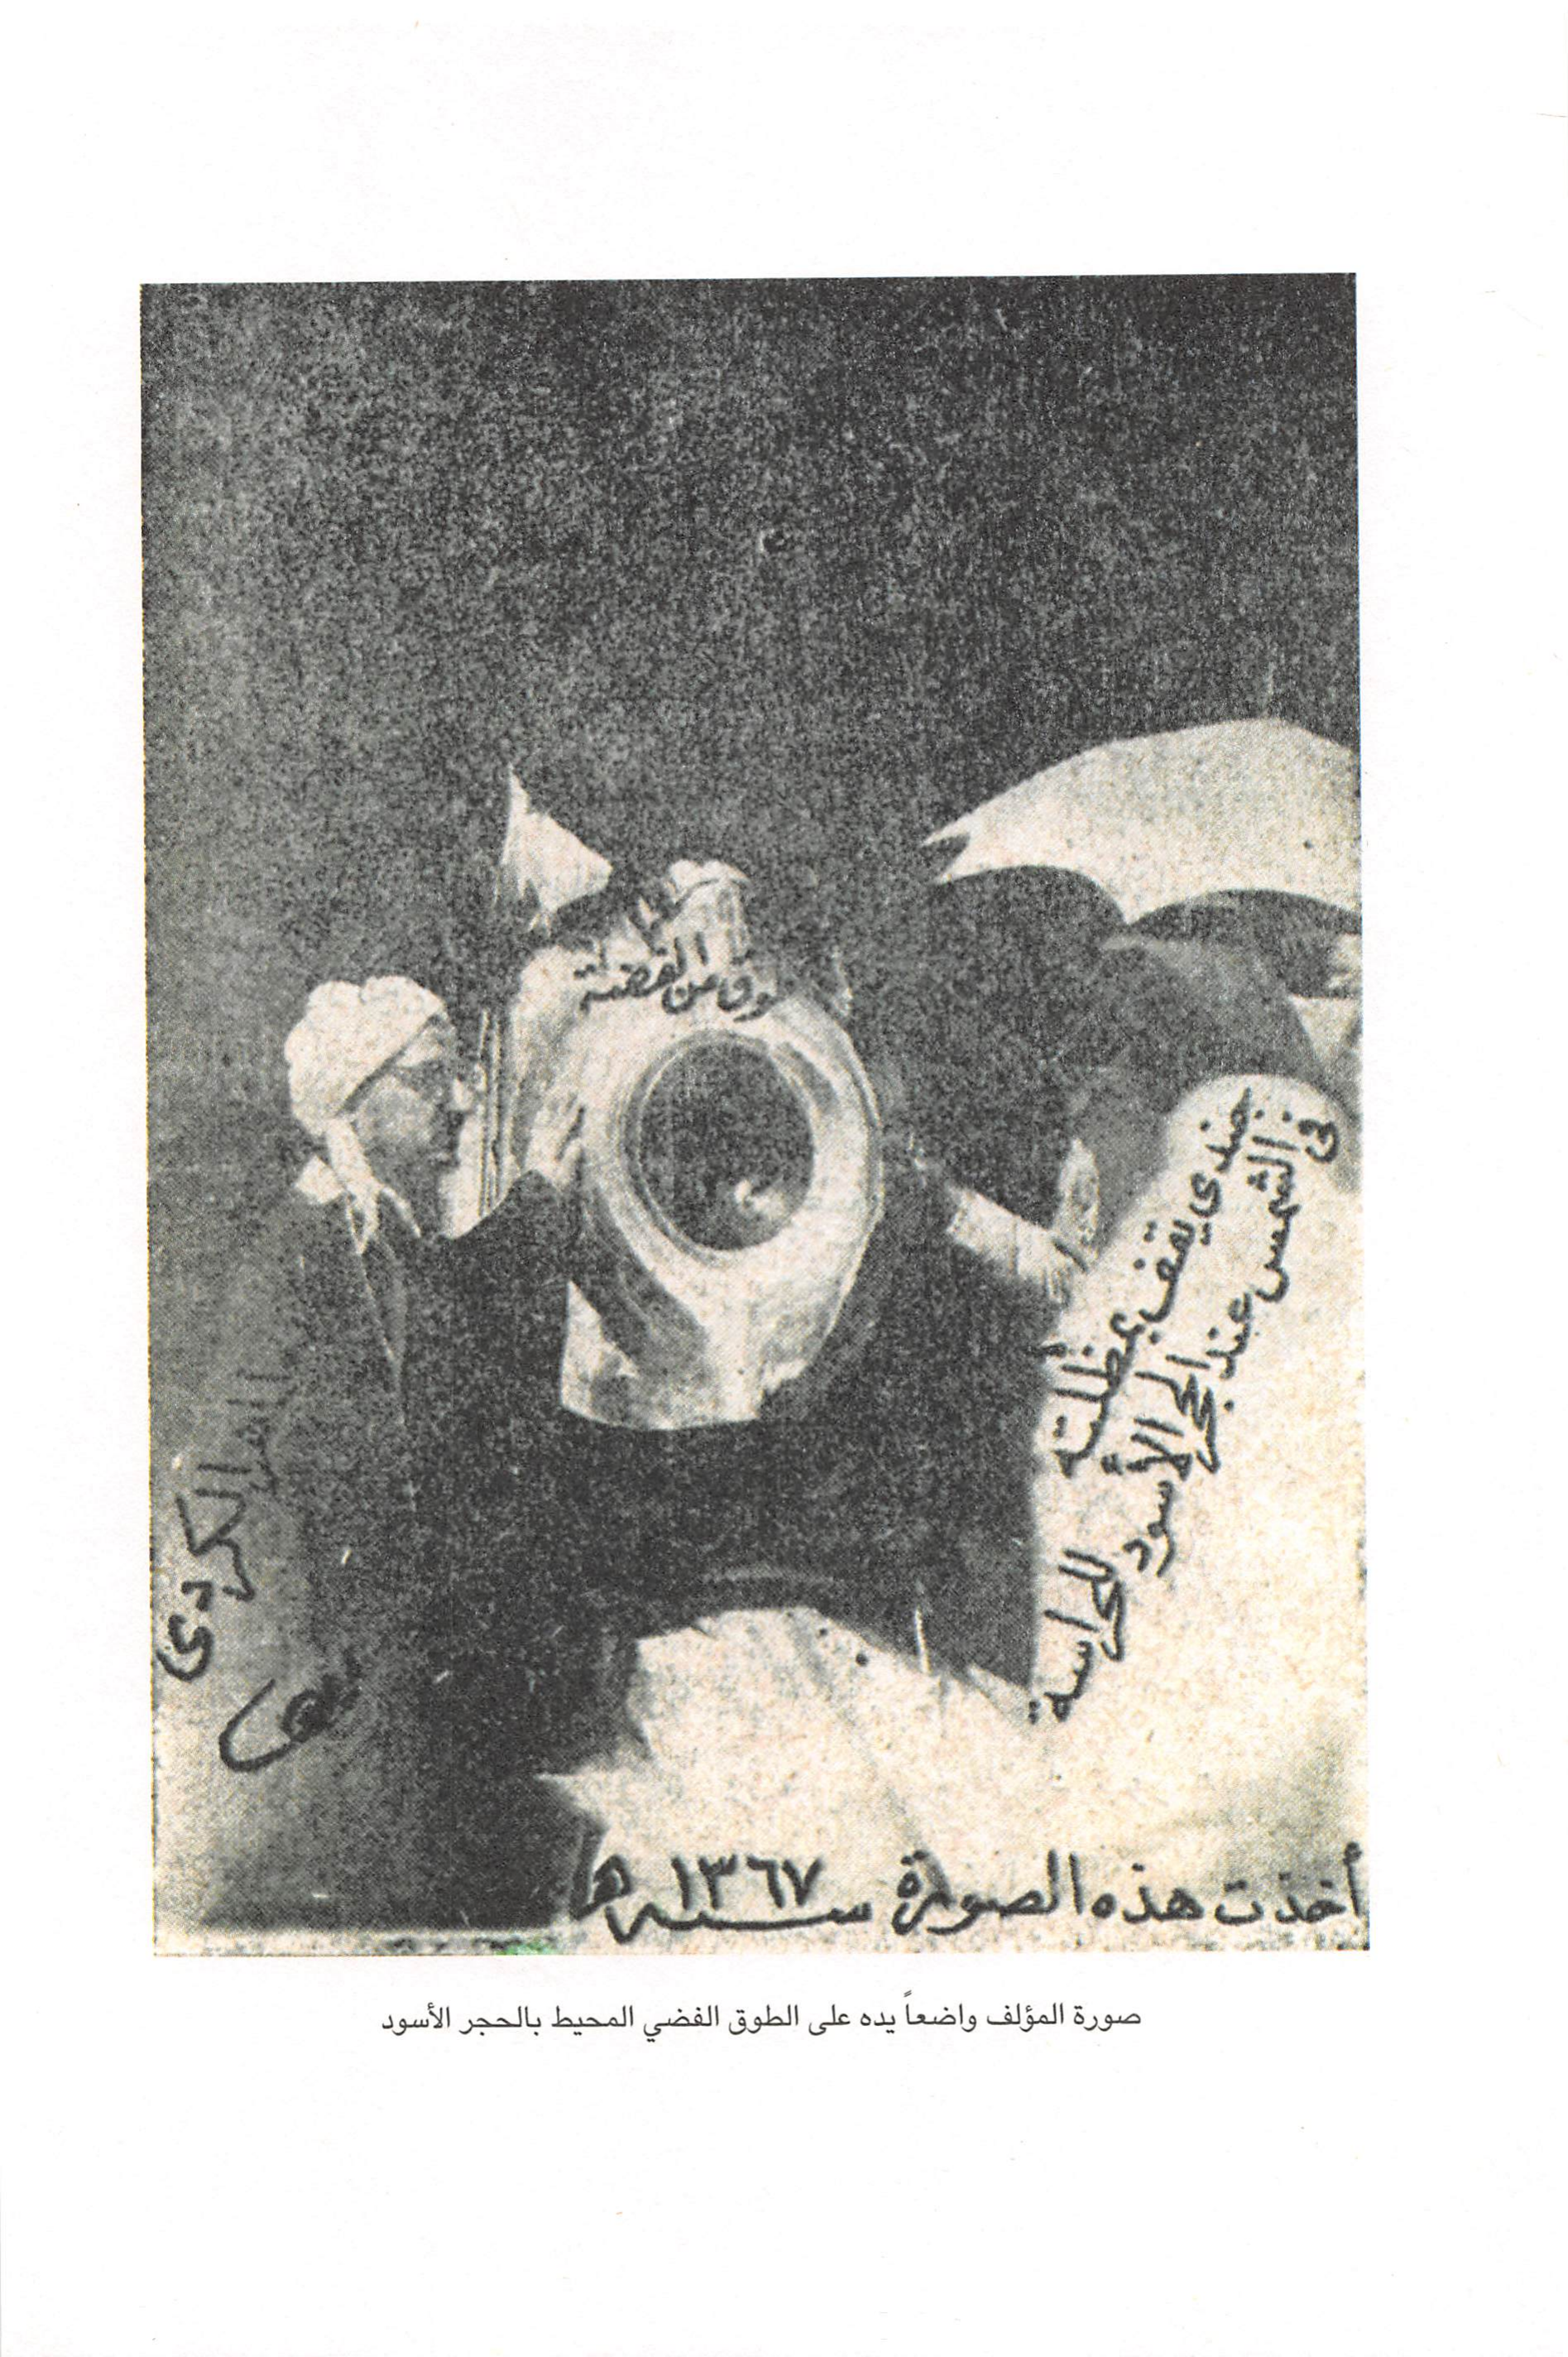 طوق من الفضة
جندي يقف بمظلته
في الشمس عند الحجر الأسود
للحراسة
الكردي
أخذت هذه الصورة سنة ١٣٦٧ هـ
صورة المؤلف واضعاً يده على الطوق الفضي المحيط بالحجر الأسود